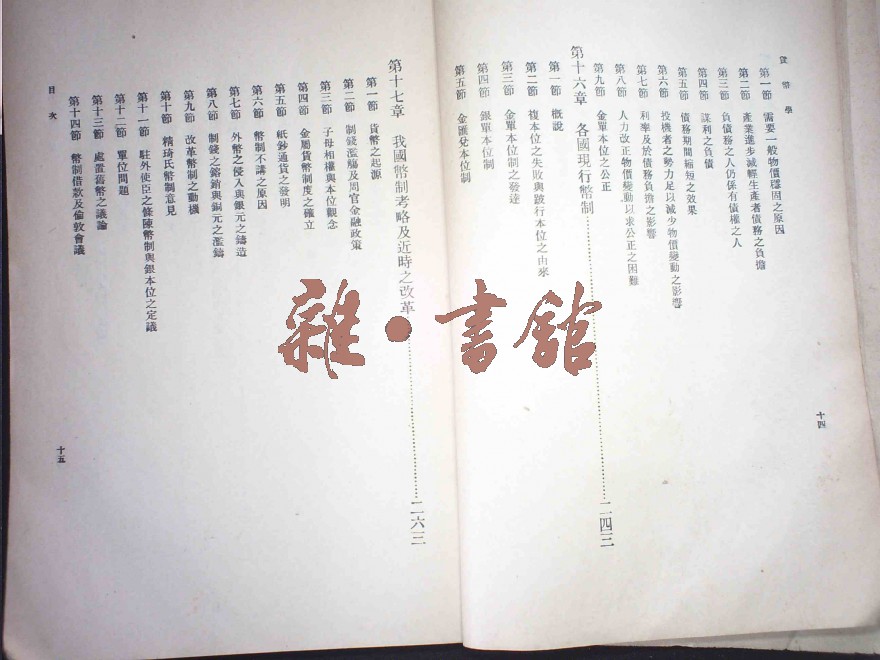 貨幣學
第一節　需要一般物價穩固之原因
第二節　產業進步減輕生產者債務之負擔
第三節　負債務之人仍係有債權之人
第四節　謀利之負債
第五節　債務期間縮短之效果
第六節　投機者之勢力足以減少物價變動之影響
第七節　利率及於債務負擔之影響
第八節　人力改正物價變動以求公正之困難
第九節　金單本位之公正
第十六章　各國現行幣制…………二四三
第一節　概說
第二節　複本位之失敗與跛行本位之由來
第三節　金單本位制之發達
第四節　銀單本位制
第五節　金匯兌本位制
十四
第十七章　我國幣制考略及近時之改革…………二六三
第一節　貨幣之起源
第二節　制錢濫觴及周官金融政策
第三節　子母相權與本位觀念
第四節　金屬貨幣制度之確立
第五節　紙鈔通貨之發明
第六節　幣制不講之原因
第七節　外幣之侵入與銀元之鑄造
第八節　制錢之鎔銷與銅元之濫鑄
第九節　改革幣制之動機
第十節　精琦氏幣制意見
第十一節　駐外使臣之條陳幣制與銀本位之定議
第十二節　單位問題
第十三節　處置舊幣之議論
第十四節　幣制借款及倫敦會議
目次
十五
雜·書館